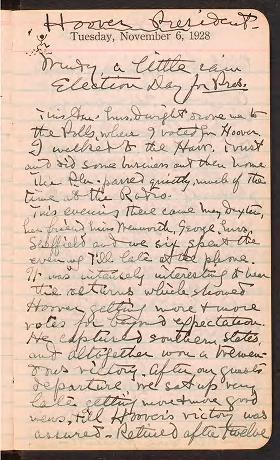 Hoover President.
Tuesday, November 6, 1928
Windy, a little rain
Election Day for Pres.
This Am. Mrs. Dwight drove me to
the Polls, where I voted for Hoover.
I walked to the Harv. Trust
and did some business out then home
The P.M. passed quietly, much of the
time at the Radio.
This evening there came May Dryden,
her friend Miss Wenworth, George, Mrs.
Sheffield and we six spent the
evening till late at the phone.
It was intensely interesting to hear
the returns which showed
Hoover getting more & more
votes far beyond expectation.
He captured southern states,
and altogether won a tremen-
dous victory. After our guests
departure we sat up very
late getting more & more good
news, till Hoover's victory was
assured. Retired after twelve